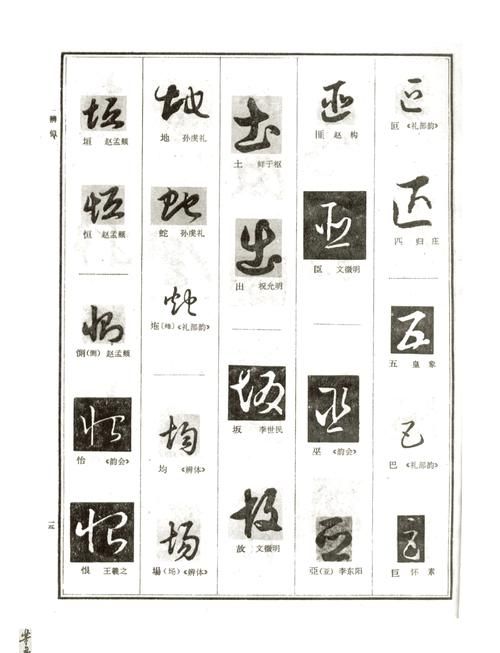 叵 《礼部韵》
匹 归庄
五 皇象
巴 《礼部韵》
巨 怀素
赵构
文徵明
巫 《韵会》
亞(亚) 李东阳
土 鲜于枢
出 祝允明
坂 李世民
故 文徵明
地 孙虔礼
蛇 孙虔礼
炧(炪)《礼部韵》
均 《辨体》
場(场)《辨体》
垣 赵孟頫
恒 赵孟頫
惻(恻) 赵孟頫
怡 《韵会》
恨 王羲之
辨异
一五